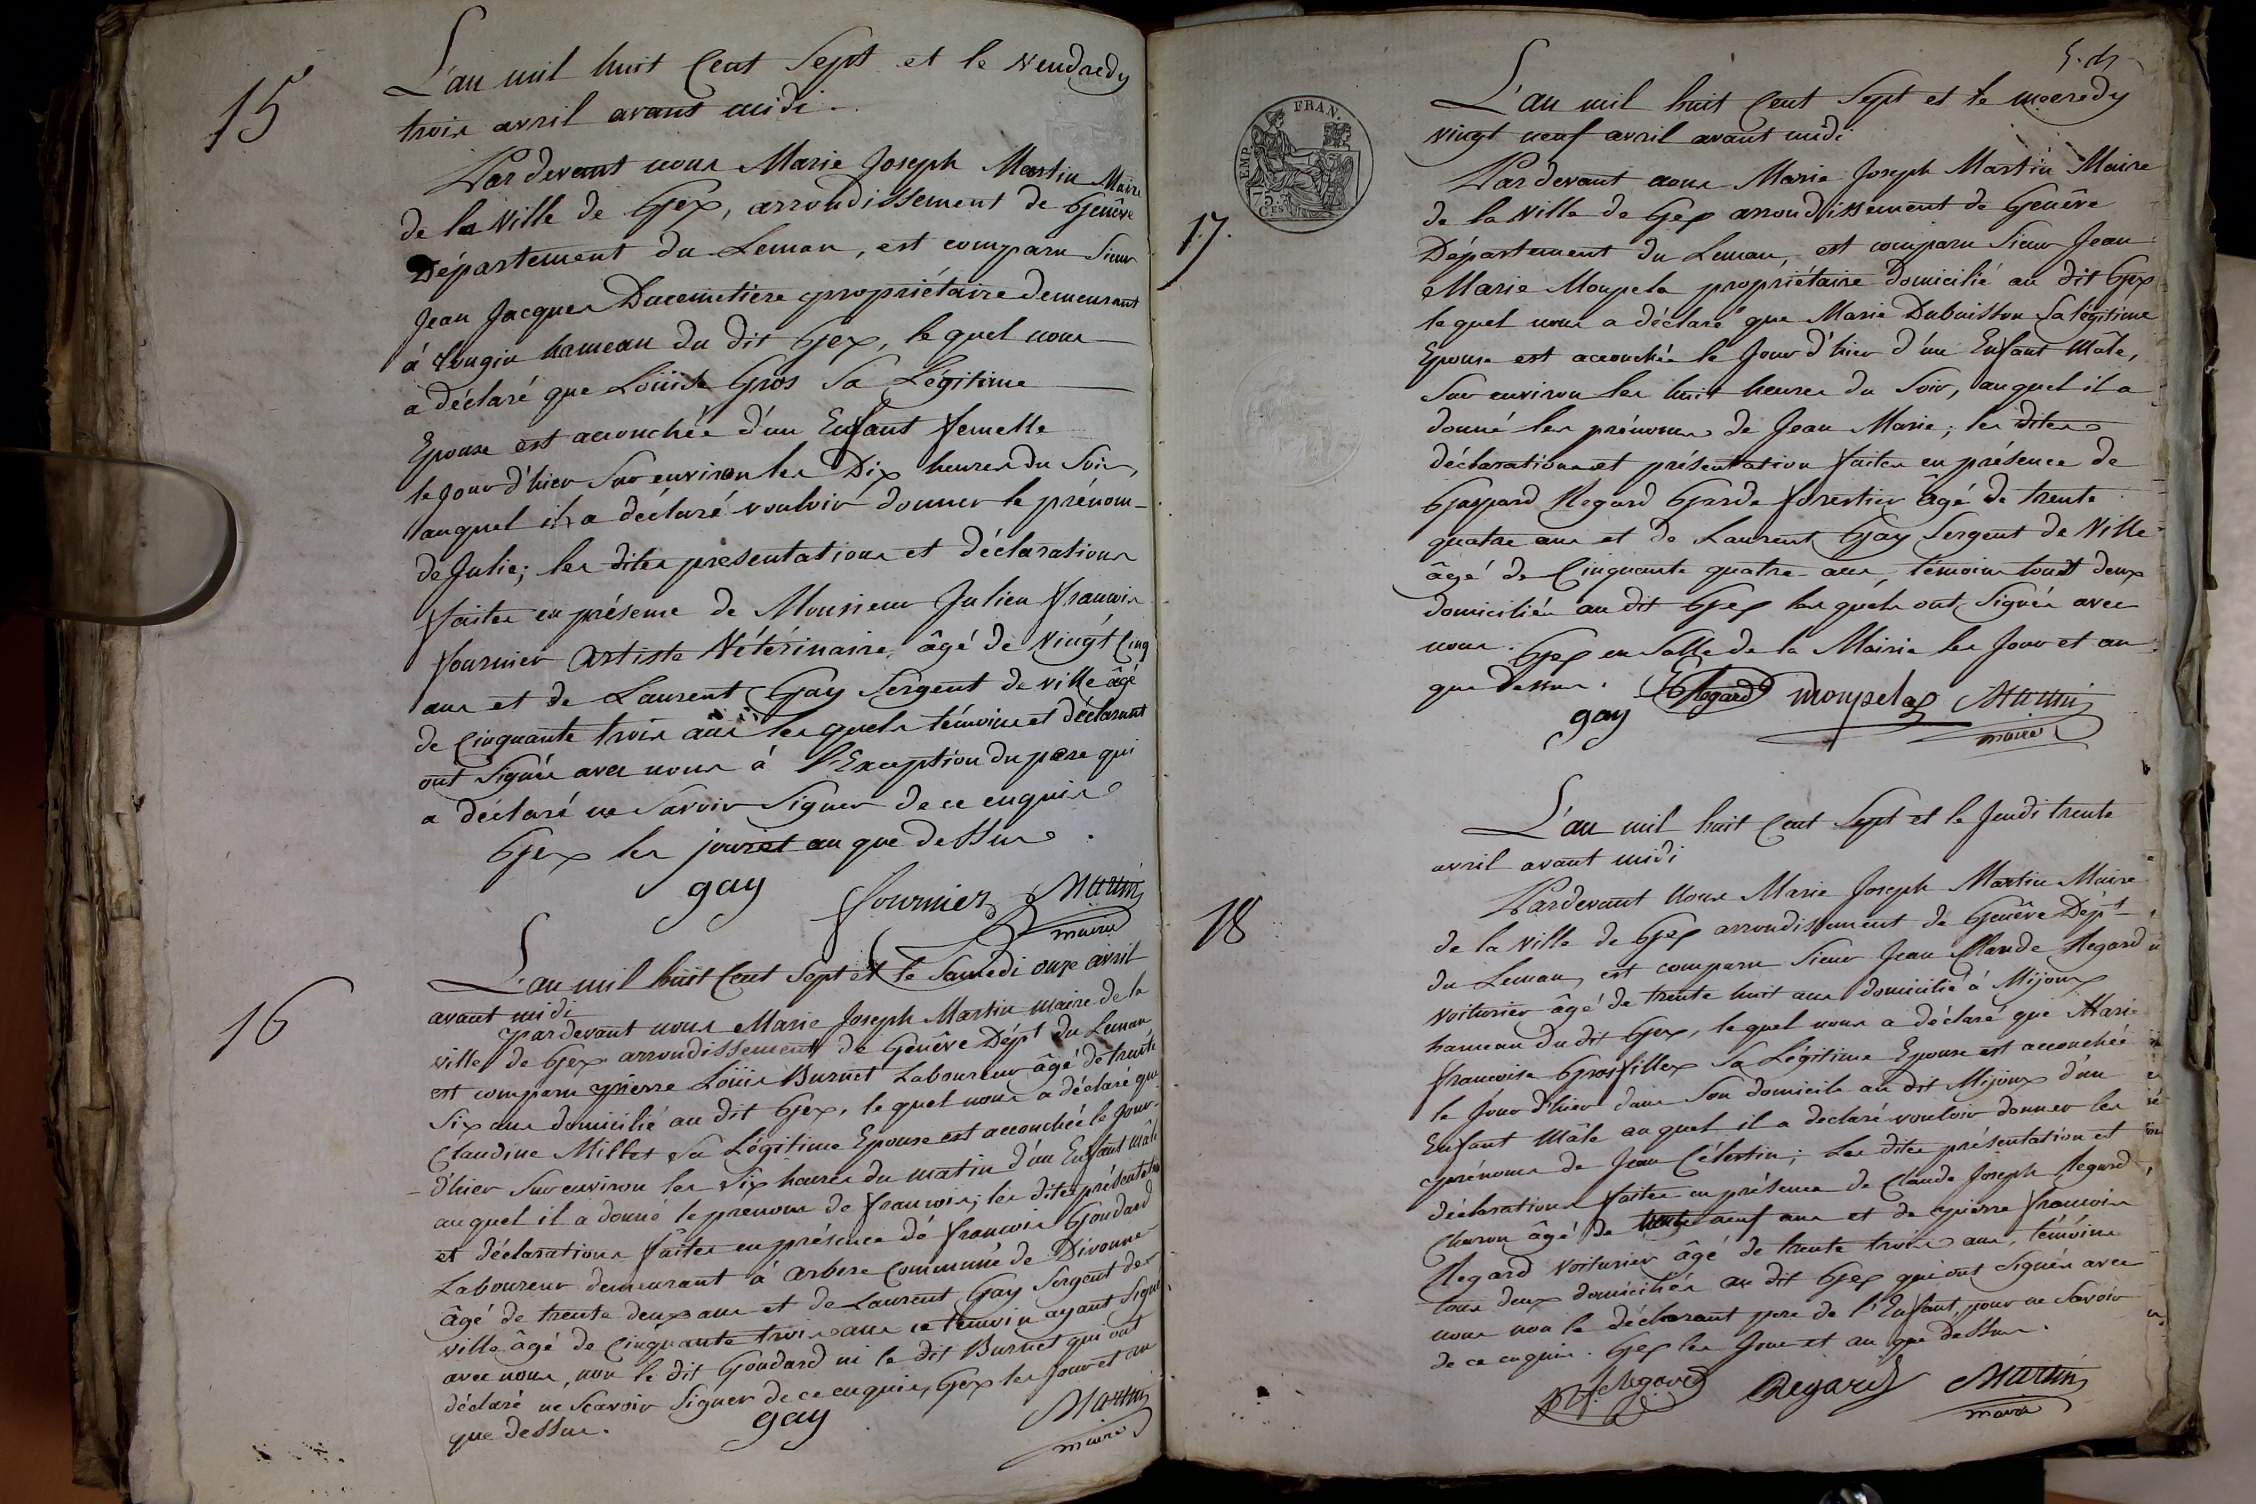 15
L'an mil huit Cent Sept et le Vendredy
trois avril avant midi
Pardevant nous Marie Joseph Martin Maire
de la Ville de Gex, arrondissement de Genêve
Département du Leman, est comparu Sieur
Jean Jacques Ducemetiere propriétaire demeurant
à hameau du dit Gex, le quel nous
a déclaré que Loüise Gros Sa Légitime
Epouse est accouchée d'un Enfant femelle
le Jour d'hier Sur environ les Dix heures du Soir,
auquel il a déclaré vouloir donner le prénom
de Julie; les dites presentations et déclarations
faites en présence de Monsieur Julien francois
fournier Artiste Vétérinaire âgé de Vingt Cinq
ans et de Laurent Gay Sergent de ville âgé
de Cinquante trois ans les quels témoins et déclarant
ont Signés avec nous à l'Exception du pere qui
a déclaré ne Savoir Signer de ce enquis
Gex les jour et an que dessus
gay fournier Martin
maire
16
L'an mil huit Cent Sept et le Samedi onze avril
avant midi
pardevant nous Marie Joseph Martin maire de la
ville de Gex arrondissement de Genêve Dépt du Leman
est comparu pierre Loüis Burnet Laboureur âgé de trente
Six ans domicilié au dit Gex, le quel nous a déclaré que
Claudine Millet Sa Légitime Epouse est accouchée le Jour
d'hier Sur environ les Six heures du matin d'un Enfant mâle
auquel il a donné le prenom de francois; les dites présentation
et déclarations faites en présence de francois Goudard
Laboureur demeurant à arbere Commune de Divonne
âgé de trente deux ans et de Laurent Gay Sergent de
ville âgé de Cinquante trois ans ce témoin ayant Signé
avec nous, non le dit Goudard ni le dit Burnet qui ont
déclaré ne Scavoir Signer de ce enquis, Gex les Jour et an
que dessus.
gay Martin
maire
EMP. FRAN.
75.
17.
L'an mil huit Cent Sept et le mecredy
vingt neuf avril avant midi
Pardevant nous Marie Joseph Martin Maire
de la Ville de Gex arrondissement de Genêve
Département du Leman, est comparu Sieur Jean
Marie Monpela propriétaire domicilié au dit Gex
le quel nous a déclaré que Marie Dubuisson Sa légitime
Epouse est accouchée le Jour d'hier d'un Enfant Mâle,
Sur environ les huit heures du Soir, auquel il a
donné les prénoms de Jean Marie; les dites
déclarations et présentation faites en présence de
Gaspard Regard Garde forestier âgé de trente
quatre ans et de Laurent Gay Sergent de Ville
âgé de Cinquante quatre ans, témoins tous deux
domiciliés au dit Gex les quels ont Signés avec
nous. Gex en Salle de la Mairie les Jour et an
que dessus.
gay Regard monpela Martin
maire
18
L'an mil huit Cent Sept et le Jeudi trente
avril avant midi
Pardevant Nous Marie Joseph Martin Maire
de la Ville de Gex arrondissement de Genêve Dépt
du Leman, est comparu Sieur Jean Claude Regard
voiturier âgé de trente huit ans domicilié à Mijoux
hameau du dit Gex, le quel nous a déclaré que Marie
francoise Grosfillex Sa Légitime Epouse est accouchée
le Jour d'hier dans Son domicile au dit Mijoux d'un
Enfant Mâle auquel il a declaré vouloir donner les
prénoms de Jean Célestin; Les dites présentation et
déclarations faites en présence de Claude Joseph Regard
Charon âgé de neuf ans et de pierre francois
Regard voiturier âgé de trente trois ans, témoins
tous deux domiciliés au dit Gex qui ont Signés avec
nous non le déclarant pere de l'Enfant, pour ne Savoir
de ce enquis. Gex les Jour et an que dessus.
Regard Regard Martin
maire